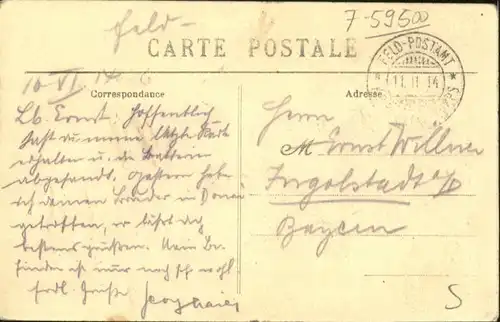 Feld-
7-59500
CARTE POSTALE
FELD-POSTAMT
11 II 14
Correspondance
Adresse
Lb. Ernst! Hoffentlich
hast du meine letzte Karte
erhalten u. die
abgesandt. Gestern habe
ich deinen Bruder in
getroffen, er läßt dich
bestens grüßen. Mein Be-
finden ist nur noch sehr wohl
Grüße
Herrn
M. Ernst Willner
Ingolstadt a/D
Bayern
S